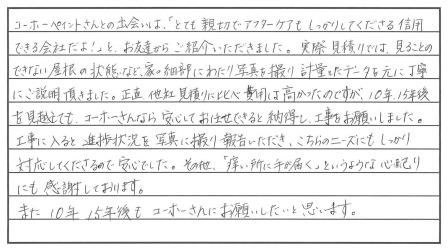 コーホーペイントさんとの出会いは、「とても親切でアフターケアもしっかりしてくださる信用
できる会社だよ!」と、お友達からご紹介いただきました。実際見積りでは、見ることの
できない屋根の状態など、家の細部にわたり写真を撮り計量したデータを元に丁寧
にご説明頂きました。正直他社見積りに比べ費用は高かったのですが、10年、15年後
を見越しても、コーホーさんなら安心しておまかせできると納得し、工事をお願いしました。
工事に入ると進捗状況を写真に撮り報告いただき、こちらのニーズにもしっかり
対応してくださるので安心でした。その他、「痒い所に手が届く」というような心配り
にも感謝しております。
また10年15年後もコーホーさんにお願いしたいと思います。